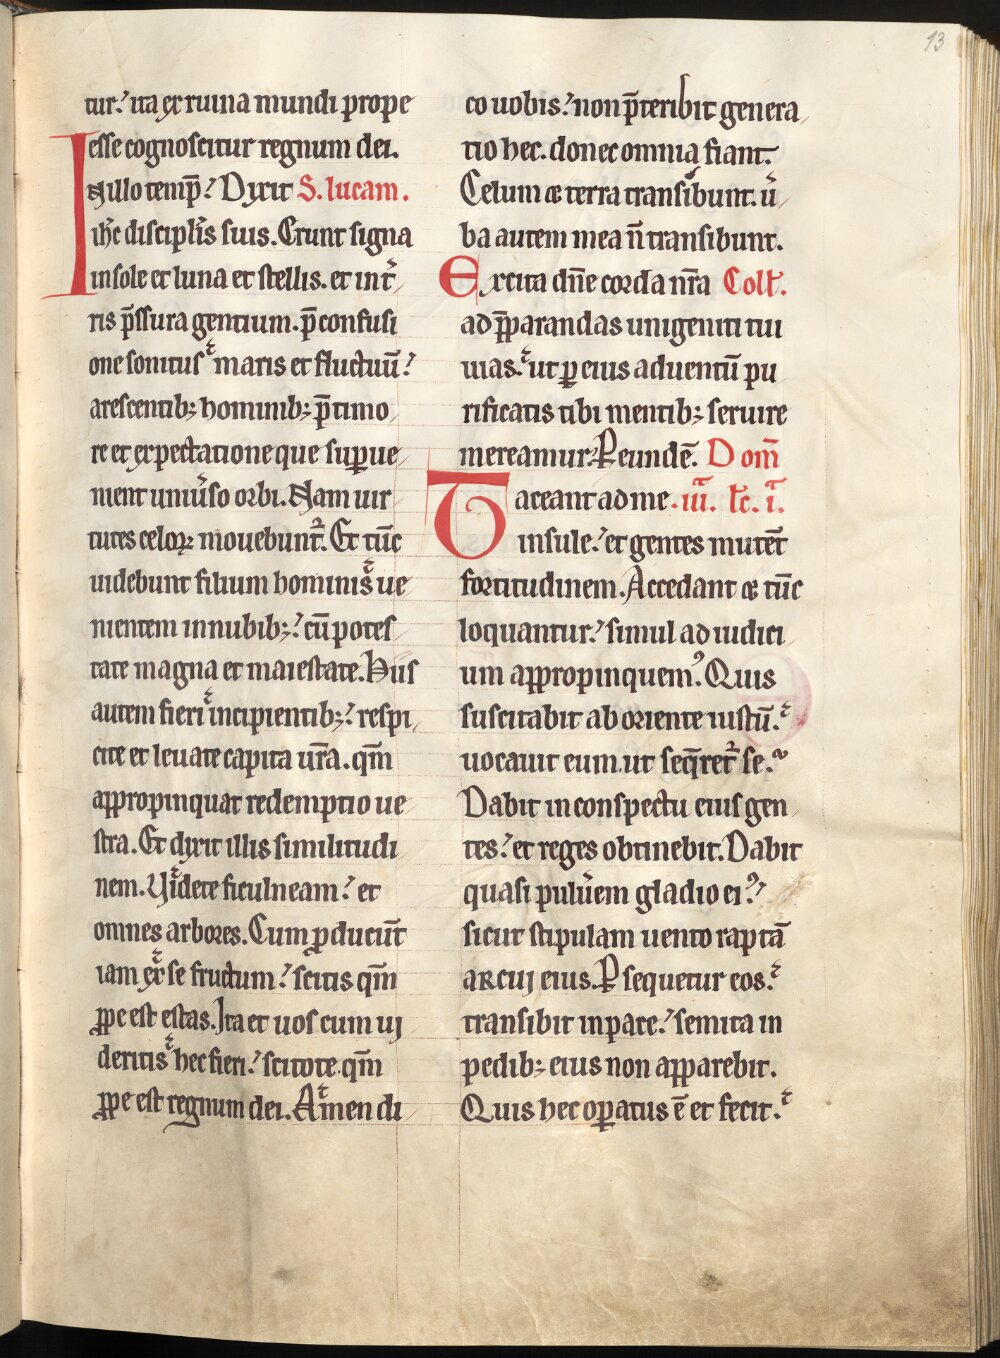 13
tur.ʼ ita ex ruina mundi prope
esse cognoscitur regnum dei.
Nillo temp̄.ʼ Dixit S. lucam.
ih̄c discipl̄is suis. Erunt signa
in sole et luna et stellis. et int̄
ris p̄ssura gentium. p̄ confusi
one sonitus maris et fluctuū.ʼ
arescentib; hominib; p̄ timo
re et expectatione que suꝑue
nient uniu̾so orbi. Nam uir
tutes celoꝝ mouebunt᷑. Et tūc
uidebunt filium hominis ue
nientem in nubib;.ʼ cū potes
tate magna et maiestate. Hiis
autem fieri incipientib;.ʼ respi
cite et leuate capita ur̄a. qm̄
appropinquat redemptio ue
stra. Et dixit illis similitudi
nem. Uidete ficulneam.ʼ et
omnes arbores. Cum ꝓducūt
iam ex se fructum.ʼ scitis qm̄
ꝓpe est estas. Ita et uos cum ui
deritis hec fieri.ʼ scitote qm̄
ꝓpe est regnum dei. Amen di
co uobis.ʼ non p̄teribit genera
tio hec. donec omnia fiant.
Celum et terra transibunt. u̾
ba autem mea n̄ transibunt.
Excita dn̄e corda nr̄a Coll̄.
ad p̄parandas unigeniti tui
uias. ut ꝑ eius aduentū pu
rificatis tibi mentib; seruire
mereamur. P eundē. Dom̄
Taceant ad me .iii. lc̄. i.
insule.ʼ et gentes mutēt
fortitudinem. Accedant et tūc
loquantur.ʼ simul ad iudici
um appropinquemꝰ. Quis
suscitabit ab oriente iustū.
uocauit eum ut seq̄ret᷑ se.
Dabit in conspectu eius gen
tes.ʼ et reges obtinebit. Dabit
quasi pulu̾em gladio eiꝰ.ʼ
sicut stipulam uento raptā
arcui eius. P sequetur eos.
transibit in pace.ʼ semita in
pedib; eius non apparebit.
Quis hec oꝑatus ē et fecit.